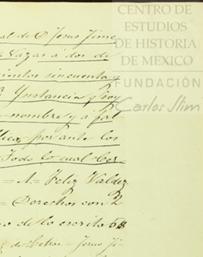 CENTRO DE
ESTUDIOS
DE HISTORIA
DE MEXICO
FUNDACIÓN
Carlos Slim
al de D. Jesus Jime
Lázar a dos de
cientos cincuenta
Ynstancia y
nombre y a fal
por ante los
Todo lo cual Cer
Feliz Valdez
Derechos con
o de lo escrito 68
Jesus Ji